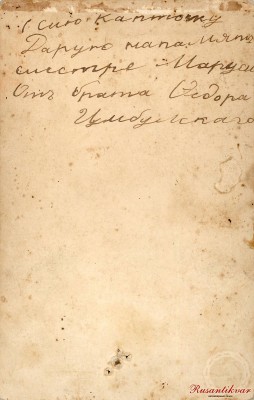 Сию карточку
Дарую папа. и мама
сместре Маруси
Отъ брата Ѳедора
Цимбулскаго
Rusantikvar